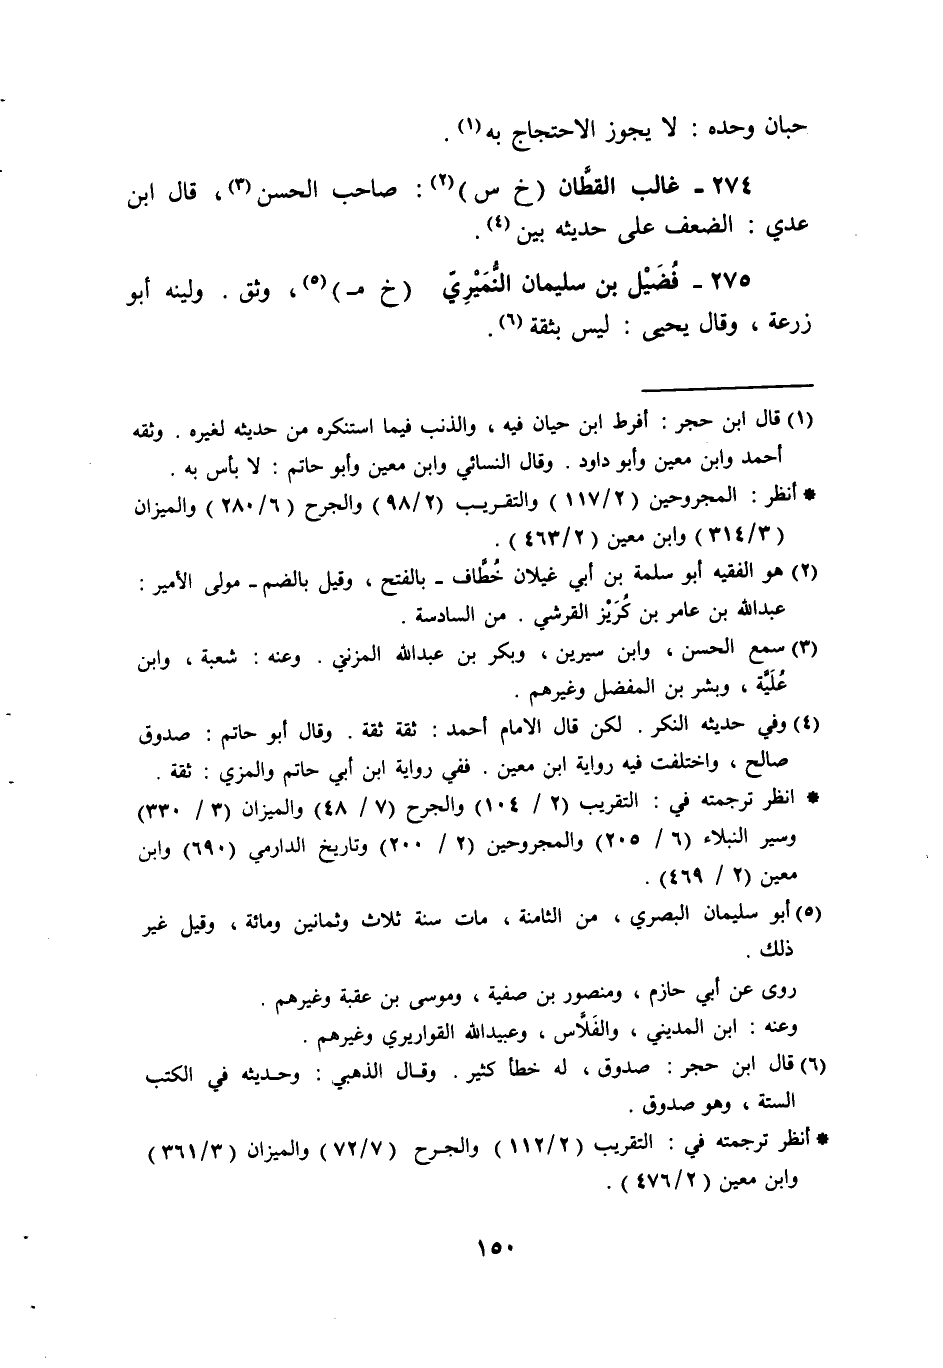 حبان وحده : لا يجوز الاحتجاج به(١) .
٢٧٤ ـ غالب القطَّان (خ س)(٢) : صاحب الحسن(٣) ، قال ابن
عدي : الضعف على حديثه بين(٤) .
٢٧٥ ـ فُضَيْل بن سليمان النُّمَيْرِيّ (خ مـ)(٥) ، وثق . ولينه أبو
زرعة ، وقال يحيى : ليس بثقة(٦) .
(١) قال ابن حجر : أفرط ابن حيان فيه ، والذنب فيما استنكره من حديثه لغيره . وثقه
أحمد وابن معين وأبو داود . وقال النسائي وابن معين وأبو حاتم : لا بأس به .
* أنظر : المجروحين (١١٧/٢) والتقريب (٩٨/٢) والجرح (٢٨٠/٦) والميزان
(٣١٤/٣) وابن معين (٤٦٣/٢) .
(٢) هو الفقيه أبو سلمة بن أبي غيلان خُطَّاف ـ بالفتح ، وقيل بالضم ـ مولى الأمير :
عبدالله بن عامر بن كُرَيْز القرشي . من السادسة .
(٣) سمع الحسن ، وابن سيرين ، وبكر بن عبدالله المزني . وعنه : شعبة ، وابن
عُلَيَّة ، وبشر بن المفضل وغيرهم .
(٤) وفي حديثه النكر . لكن قال الامام أحمد : ثقة ثقة . وقال أبو حاتم : صدوق
صالح ، واختلفت فيه رواية ابن معين . ففي رواية ابن أبي حاتم والمزي : ثقة .
* انظر ترجمته في : التقريب (٢ / ١٠٤) والجرح (٧ / ٤٨) والميزان (٣ / ٣٣٠)
وسير النبلاء (٦ / ٢٠٥) والمجروحين (٢ / ٢٠٠) وتاريخ الدارمي (٦٩٠) وابن
معين (٢ / ٤٦٩) .
(٥) أبو سليمان البصري ، من الثامنة ، مات سنة ثلاث وثمانين ومائة ، وقيل غير
ذلك .
روى عن أبي حازم ، ومنصور بن صفية ، وموسى بن عقبة وغيرهم .
وعنه : ابن المديني ، والفَلَّاس ، وعبيدالله القواريري وغيرهم .
(٦) قال ابن حجر : صدوق ، له خطأ كثير . وقال الذهبي : وحديثه في الكتب
الستة ، وهو صدوق .
* أنظر ترجمته في : التقريب (١١٢/٢) والجرح (٧٢/٧) والميزان (٣٦١/٣)
وابن معين (٤٧٦/٢) .
١٥٠